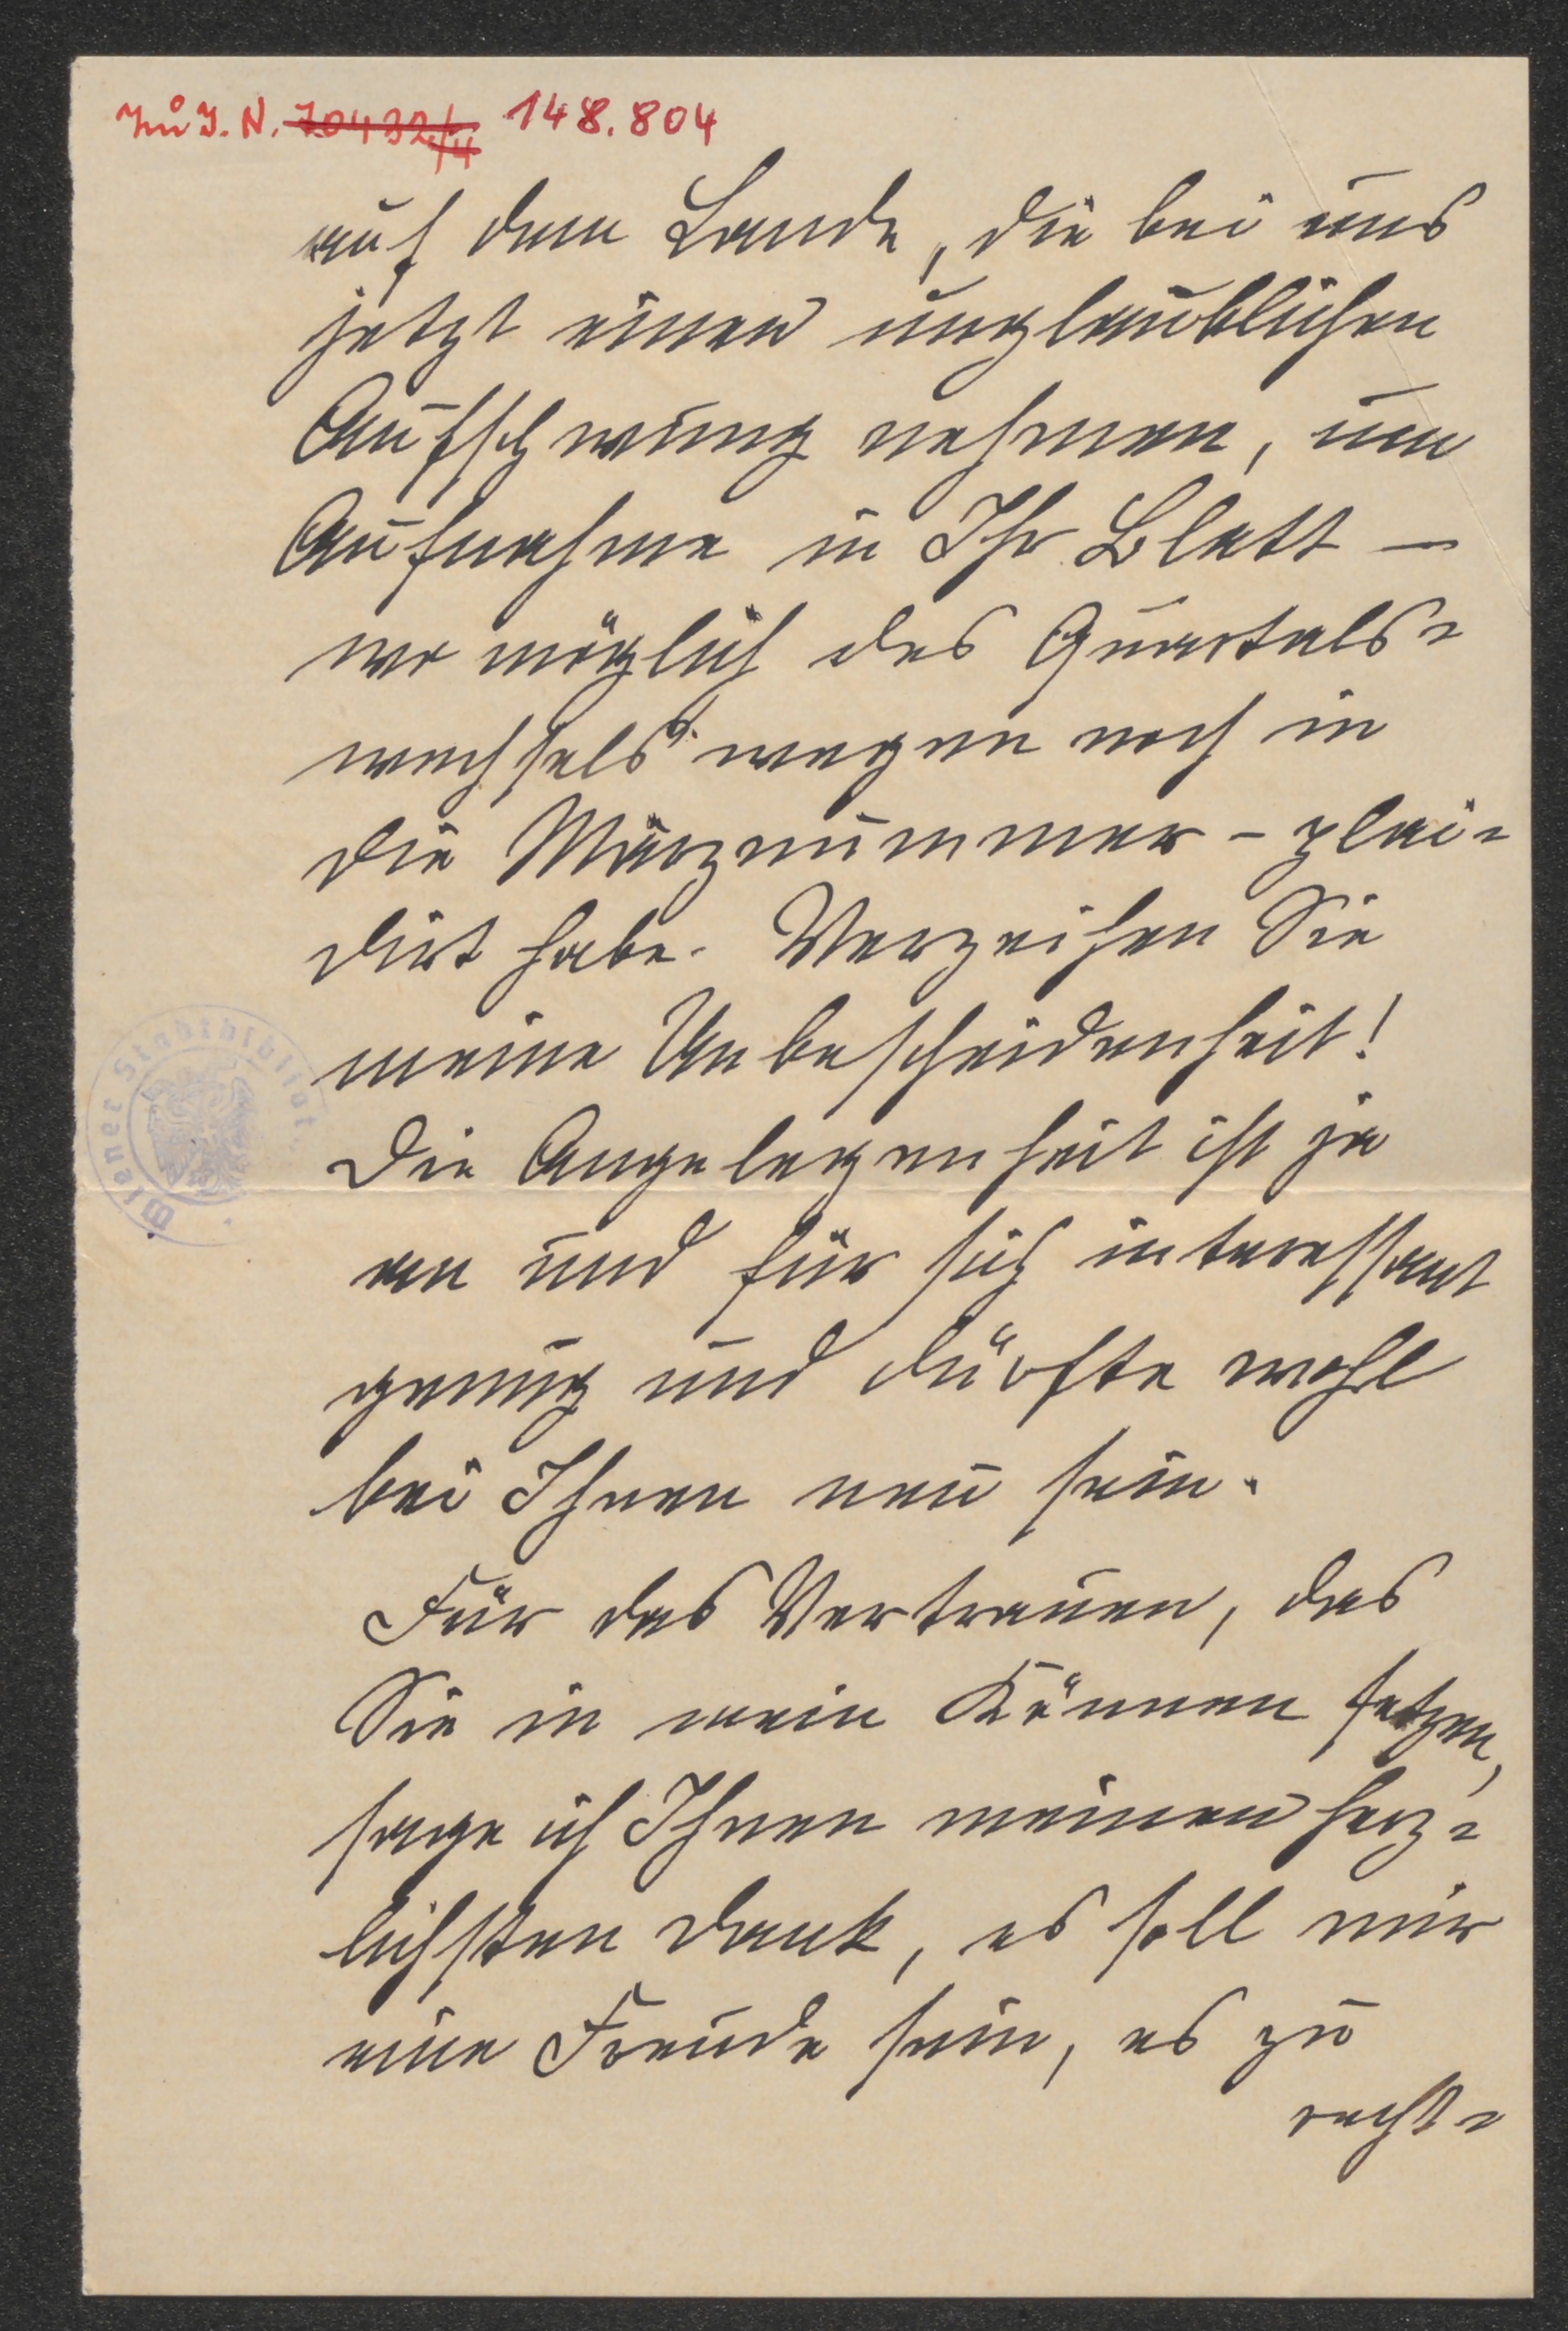 Zu I. N. 70432/4 148.804
auf dem Lande, die bei uns
jetzt einen unglaublichen
Aufschwung nehmen, um
Aufnahme in Ihr Blatt —
wo möglich des Quartals=
wechsels wegen noch in
die Märznummer – plai=
dirt habe. Verzeihen Sie
meine Unbescheidenheit!
Die Angelegenheit ist ja
an und für sich interessant
genug und dürfte wohl
bei Ihnen neu sein.
Für das Vertrauen, das
Sie in mein Können setzen,
sage ich Ihnen meinen herz=
lichsten Dank, es soll mir
eine Freude sein, es zu
recht=
Wiener Stadtbibliot